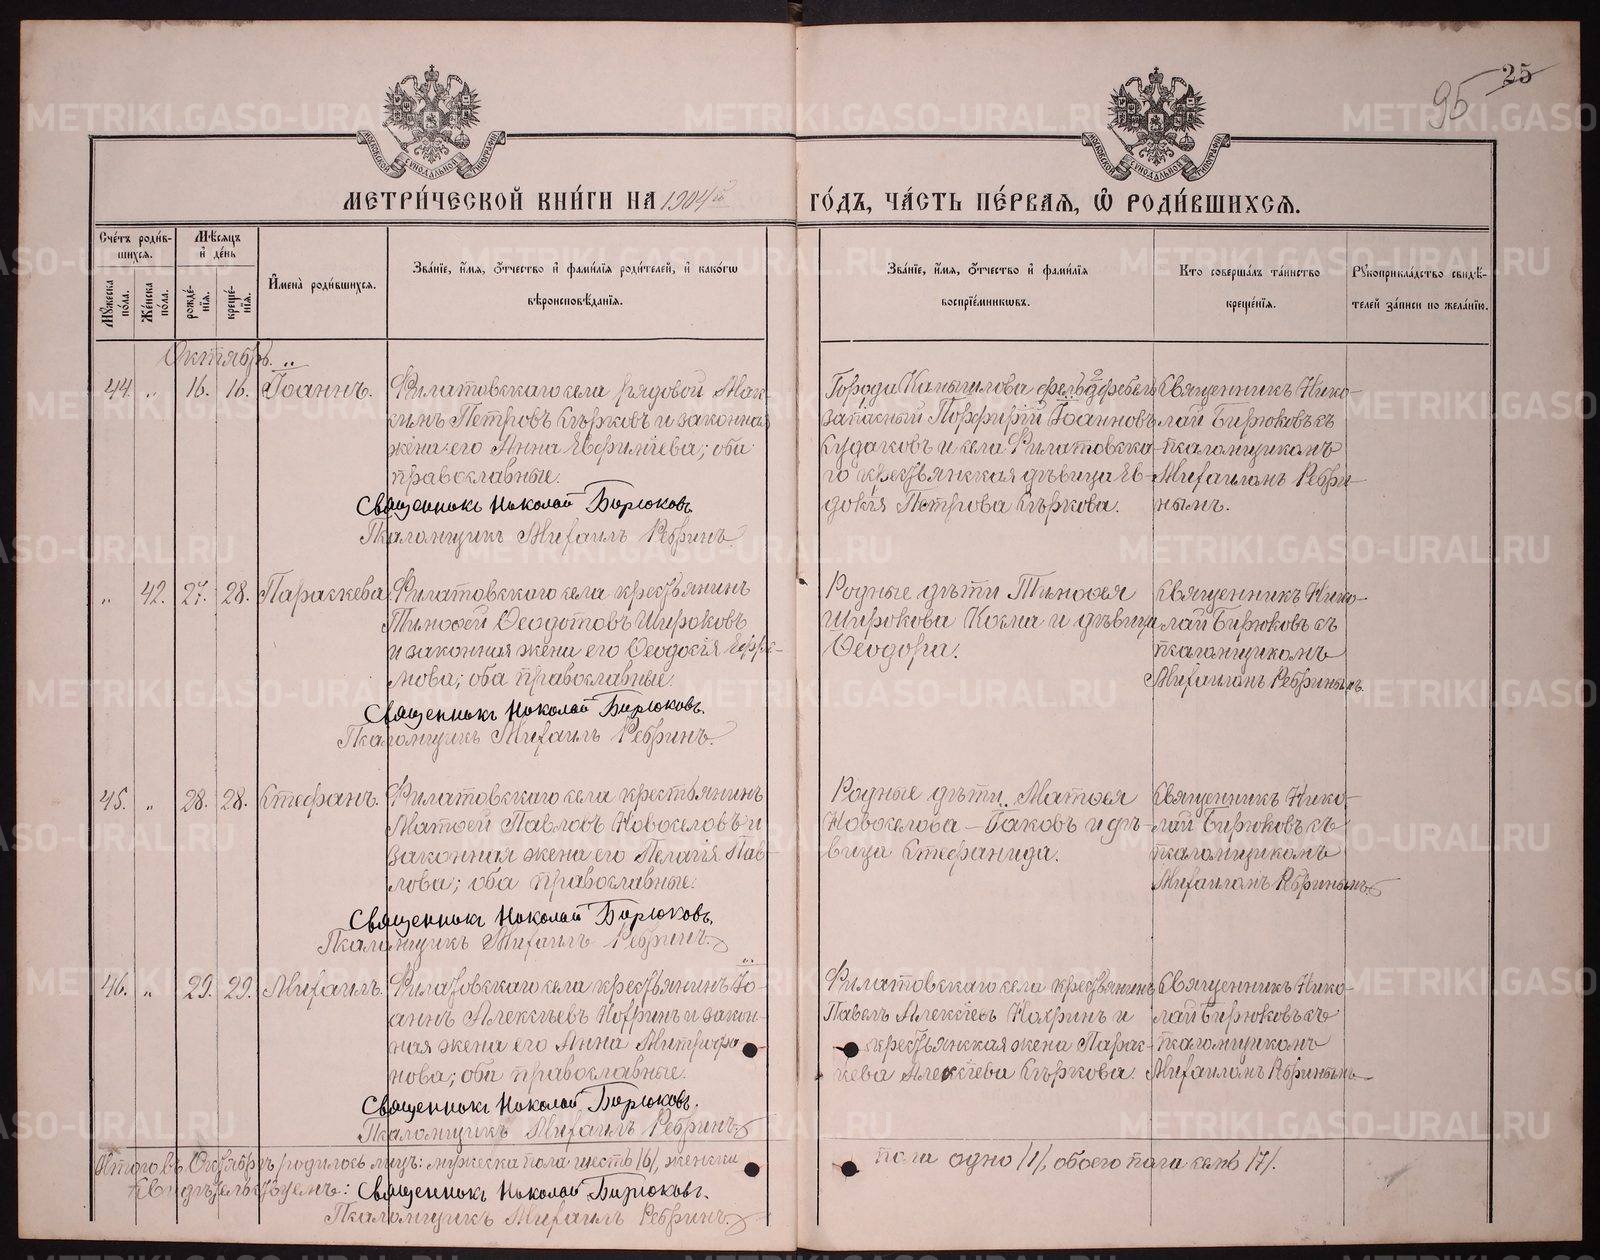 95 25
МЕТРИ́ЧЕСКОЙ КНИ́ГИ НА 1904й ГО́ДЪ, ЧА́СТЬ ПЕ́РВАѦ, Ѽ РОДИ́ВШИХСѦ.
Сче́тъ роди́вшихсѧ.
Мꙋ́жеска по́ла.
Же́нска по́ла.
Мѣ́сѧцъ и҆ де́нь
рожде́нїѧ.
креще́нїѧ.
И҆мена̀ роди́вшихсѧ.
Зва́нїе, и҆́мѧ, ѻ҆́тчество и҆ фами́лїѧ роди́телей, и҆ како́гѡ
вѣроисповѣ́данїѧ.
Зва́нїе, и҆́мѧ, ѻ҆́тчество и҆ фами́лїѧ
воспрїе́мникѡвъ.
Кто̀ соверша́лъ та́инство
креще́нїѧ.
Рꙋкоприкла́дство свидѣ́-
телей за́писи по жела́нїю.
Октябрь.
44. „ 16. 16. Іоаннъ.
Филатовскаго села рядовой Мак-
симъ Петровъ Сѣрковъ и законная
жена его Анна Евфиміева; оба
православные.
Священникъ Николай Бирюковъ.
Псаломщикъ Михаилъ Ребринъ.
Города Камышлова фельдфебель
запасный Порфирій Іоанновъ
Кудаковъ и села Филатовска-
го крестьянская дѣвица Ев-
докія Петрова Сѣркова.
Священникъ Нико-
лай Бирюковъ съ
псаломщикомъ
Михаиломъ Ребри-
нымъ.
„ 42. 27. 28. Параскева
Филатовскаго села крестьянинъ
Тимоѳей Ѳеодотовъ Широковъ
и законная жена его Ѳеодосія Ефре-
мова; оба православные.
Священникъ Николай Бирюковъ.
Псаломщикъ Михаилъ Ребринъ.
Родные дѣти Тимоѳея
Широкова Косма и дѣвица
Ѳеодора.
Священникъ Нико-
лай Бирюковъ съ
псаломщикомъ
Михаиломъ Ребринымъ.
45. „ 28. 28. Стефанъ.
Филатовскаго села крестьянинъ
Матѳей Павловъ Новоселовъ и
законная жена его Пелагія Пав-
лова; оба православные.
Священникъ Николай Бирюковъ.
Псаломщикъ Михаилъ Ребринъ.
Родные дѣти Матѳея
Новоселова – Іаковъ и дѣ-
вица Стефанида.
Священникъ Нико-
лай Бирюковъ съ
псаломщикомъ
Михаиломъ Ребринымъ.
46. „ 29. 29. Михаилъ.
Филатовскаго села крестьянинъ Іо-
аннъ Алексѣевъ Нохринъ и закон-
ная жена его Анна Митрофа
нова; оба православные.
Священникъ Николай Бирюковъ.
Псаломщикъ Михаилъ Ребринъ.
Филатовскаго села крестьянинъ
Павелъ Алексѣевъ Нохринъ и
крестьянская жена Парас-
кева Алексіева Сѣркова.
Священникъ Нико-
лай Бирюковъ съ
псаломщикомъ
Михаиломъ Ребринымъ
Итого въ Октябрѣ родилось лицъ: мужеска пола шесть /6/, женска пола одно /1/, обоего пола семь /7/.
Свидѣтельствуемъ: Священникъ Николай Бирюковъ.
Псаломщикъ Михаилъ Ребринъ.
METRIKI.GASO-URAL.RU